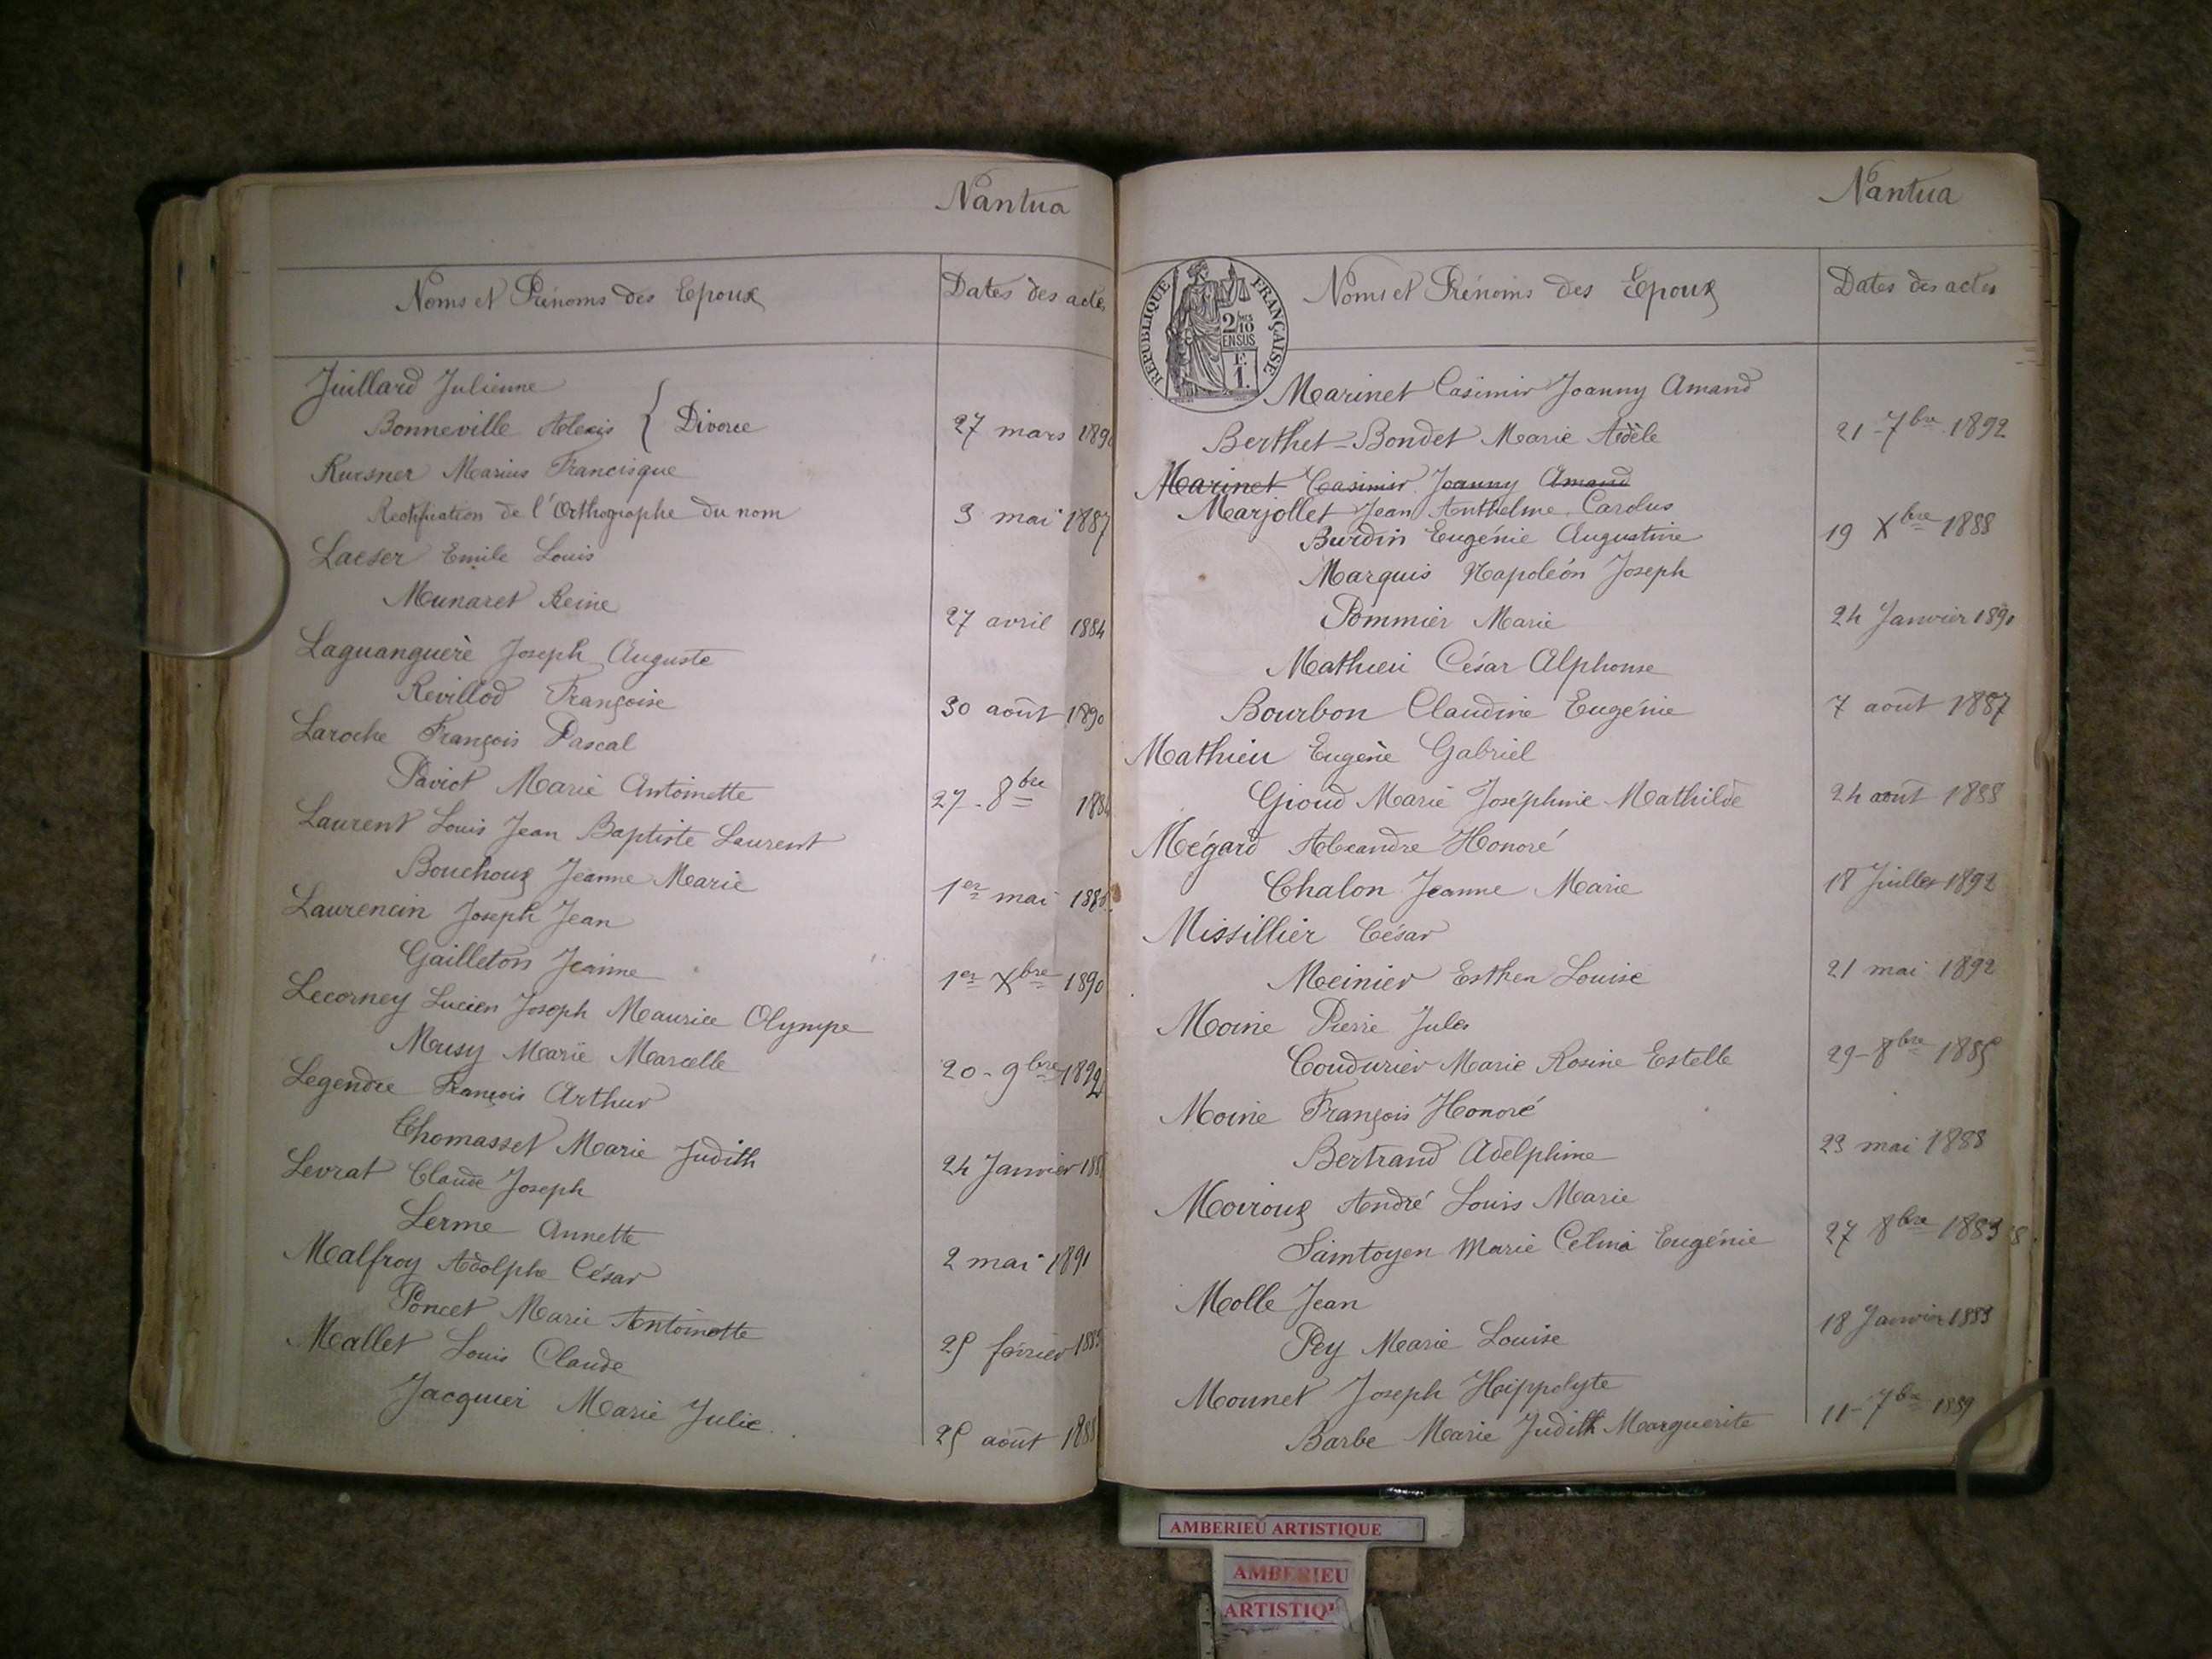 Nantua
Noms et Prénoms des Epoux
Dates des actes
Juillard Julienne
Bonneville Alexis { Divorce
27 mars 189
Kuesner Marius Francisque
Rectification de l'Orthographe du nom
3 mai 1887
Laeser Emile Louis
Munaret Reine
27 avril 1884
Laguanguère Joseph Auguste
Revillod Françoise
30 août 1890
Laroche François Pascal
Paviot Marie Antoinette
27 - 8bre 188
Laurent Louis Jean Baptiste Laurent
Bouchoux Jeanne Marie
1er mai 188
Laurencin Joseph Jean
Gailleton Jeanne
1er Xbre 1890
Lecorney Lucien Joseph Maurice Olympe
Musy Marie Marcelle
20 - 9bre 1892
Legendre François Arthur
Thomasset Marie Judith
24 Janvier 188
Levrat Claude Joseph
Lerme Annette
2 mai 1891
Malfroy Adolphe César
Poncet Marie Antoinette
25 février 188
Mallet Louis Claude
Jacquier Marie Julie
25 août 188
Nantua
REPUBLIQUE FRANÇAISE
2/10 EN SUS
F. 1.
Noms et Prénoms des Epoux
Dates des actes
Marinet Casimir Joanny Amand
Berthet-Bondet Marie Adèle
21 - 7bre 1892
Marinet Casimir Joanny Amand
Marjollet Jean Anthelme Carolus
Burdin Eugénie Augustine
19 Xbre 1888
Marquis Napoléon Joseph
Pommier Marie
24 Janvier 1891
Mathieu César Alphonse
Bourbon Claudine Eugénie
7 août 1887
Mathieu Eugène Gabriel
Gioud Marie Joséphine Mathilde
24 août 1888
Mégard Alexandre Honoré
Chalon Jeanne Marie
18 Juillet 1892
Missillier César
Meinier Esther Louise
21 mai 1892
Moine Pierre Jules
Coudurier Marie Rosine Estelle
29 - 8bre 1885
Moine François Honoré
Bertrand Adelphine
23 mai 1888
Moiroux André Louis Marie
Saintoyen Marie Celina Eugénie
27 8bre
Molle Jean
Pey Marie Louise
18 Janvier 1883
Mounet Joseph Hippolyte
Barbe Marie Judith Marguerite
11 - 7bre 1889
AMBERIEU ARTISTIQUE
AMBERIEU
ARTISTIQU